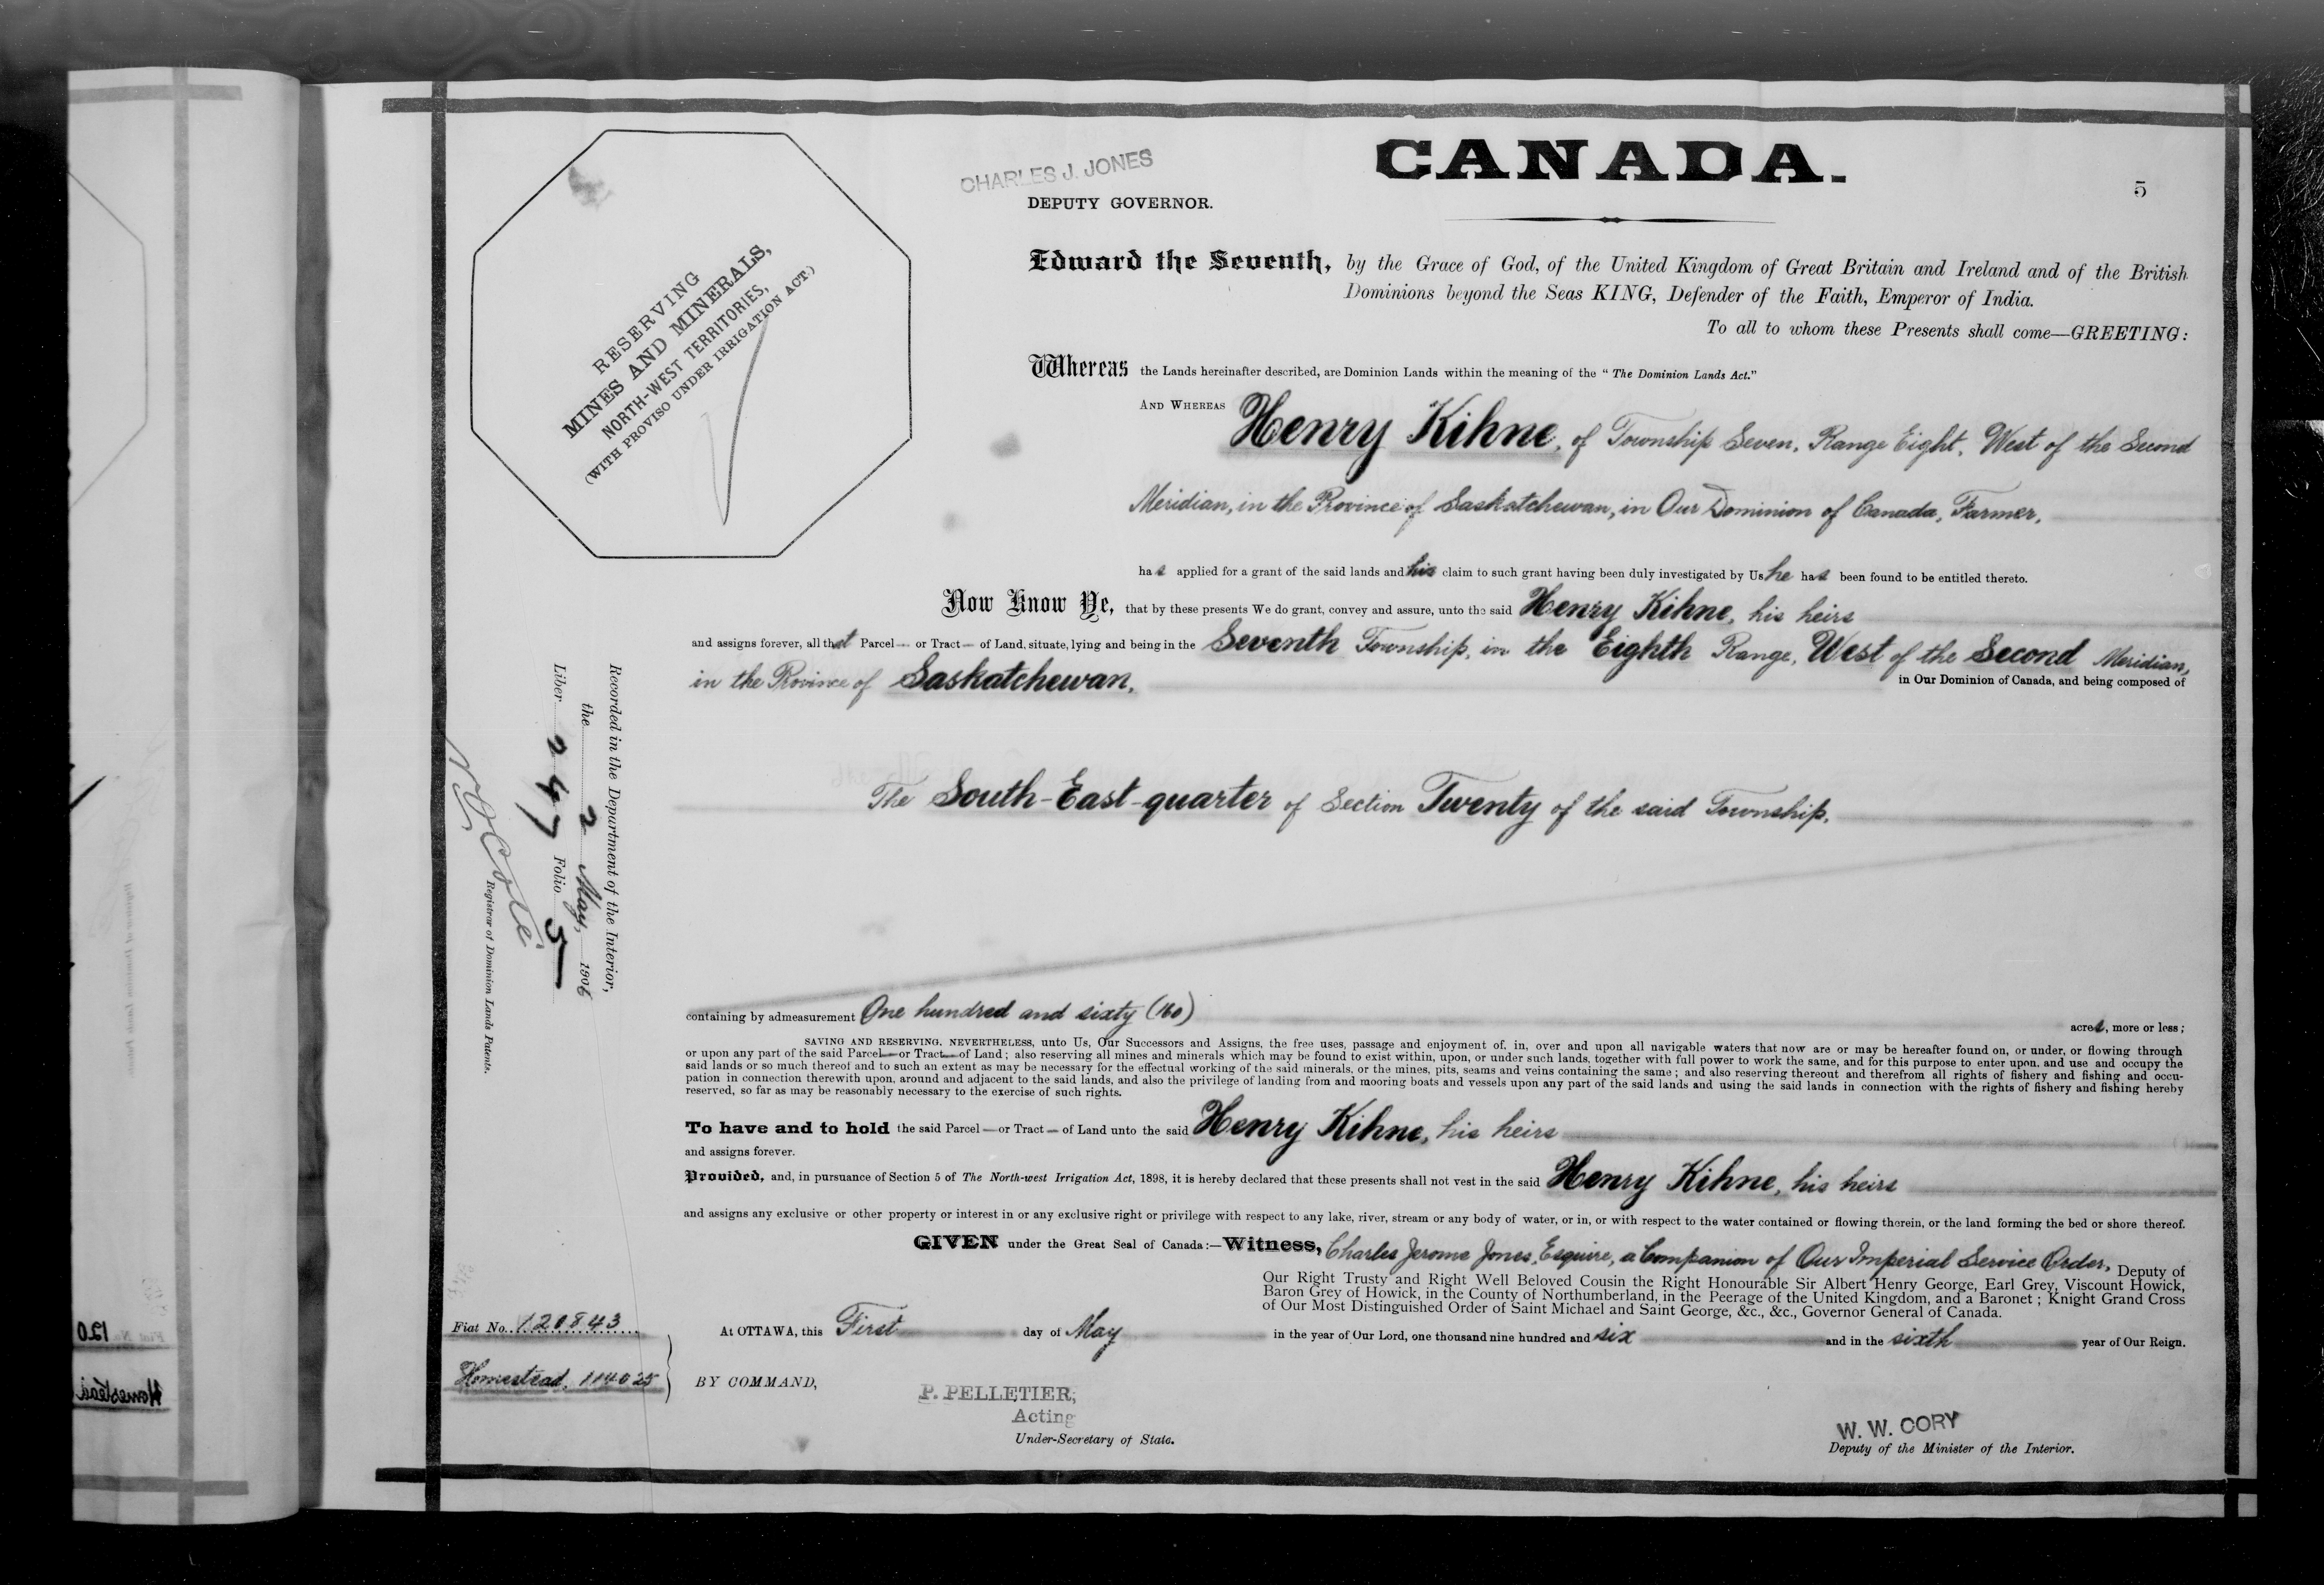 CANADA.
5
CHARLES J. JONES
DEPUTY GOVERNOR.
RESERVING
MINES AND MINERALS,
NORTH-WEST TERRITORIES,
(WITH PROVISO UNDER IRRIGATION ACT.)
Edward the Seventh, by the Grace of God, of the United Kingdom of Great Britain and Ireland and of the British
Dominions beyond the Seas KING, Defender of the Faith, Emperor of India.
To all to whom these Presents shall come—GREETING:
Whereas the Lands hereinafter described, are Dominion Lands within the meaning of the "The Dominion Lands Act."
AND WHEREAS Henry Kihne, of Township Seven, Range Eight, West of the Second
Meridian, in the Province of Saskatchewan, in Our Dominion of Canada, Farmer,
has applied for a grant of the said lands and his claim to such grant having been duly investigated by Us he has been found to be entitled thereto.
Now Know Ye, that by these presents We do grant, convey and assure, unto the said Henry Kihne, his heirs
and assigns forever, all that Parcel— or Tract— of Land, situate, lying and being in the Seventh Township, in the Eighth Range, West of the Second Meridian,
in the Province of Saskatchewan, in Our Dominion of Canada, and being composed of
The South-East-quarter of Section Twenty of the said Township.
containing by admeasurement One hundred and sixty (160) acres, more or less;
SAVING AND RESERVING, NEVERTHELESS, unto Us, Our Successors and Assigns, the free uses, passage and enjoyment of, in, over and upon all navigable waters that now are or may be hereafter found on, or under, or flowing through
or upon any part of the said Parcel—or Tract—of Land; also reserving all mines and minerals which may be found to exist within, upon, or under such lands, together with full power to work the same, and for this purpose to enter upon, and use and occupy the
said lands or so much thereof and to such an extent as may be necessary for the effectual working of the said minerals, or the mines, pits, seams and veins containing the same; and also reserving thereout and therefrom all rights of fishery and fishing and occu-
pation in connection therewith upon, around and adjacent to the said lands, and also the privilege of landing from and mooring boats and vessels upon any part of the said lands and using the said lands in connection with the rights of fishery and fishing hereby
reserved, so far as may be reasonably necessary to the exercise of such rights.
To have and to hold the said Parcel—or Tract— of Land unto the said Henry Kihne, his heirs
and assigns forever.
Provided, and, in pursuance of Section 5 of The North-west Irrigation Act, 1898, it is hereby declared that these presents shall not vest in the said Henry Kihne, his heirs
and assigns any exclusive or other property or interest in or any exclusive right or privilege with respect to any lake, river, stream or any body of water, or in, or with respect to the water contained or flowing therein, or the land forming the bed or shore thereof.
GIVEN under the Great Seal of Canada:—Witness, Charles Jerome Jones, Esquire, a Companion of Our Imperial Service Order, Deputy of
Our Right Trusty and Right Well Beloved Cousin the Right Honourable Sir Albert Henry George, Earl Grey, Viscount Howick,
Baron Grey of Howick, in the County of Northumberland, in the Peerage of the United Kingdom, and a Baronet; Knight Grand Cross
of Our Most Distinguished Order of Saint Michael and Saint George, &c., &c., Governor General of Canada.
At OTTAWA, this First day of May in the year of Our Lord, one thousand nine hundred and six and in the sixth year of Our Reign.
BY COMMAND,
P. PELLETIER,
Acting
Under-Secretary of State.
W. W. CORY
Deputy of the Minister of the Interior.
Recorded in the Department of the Interior,
the 2 May, 1906
Liber 247 Folio 5
Registrar of Dominion Lands Patents.
Fiat No. 120843
Homestead, 114025